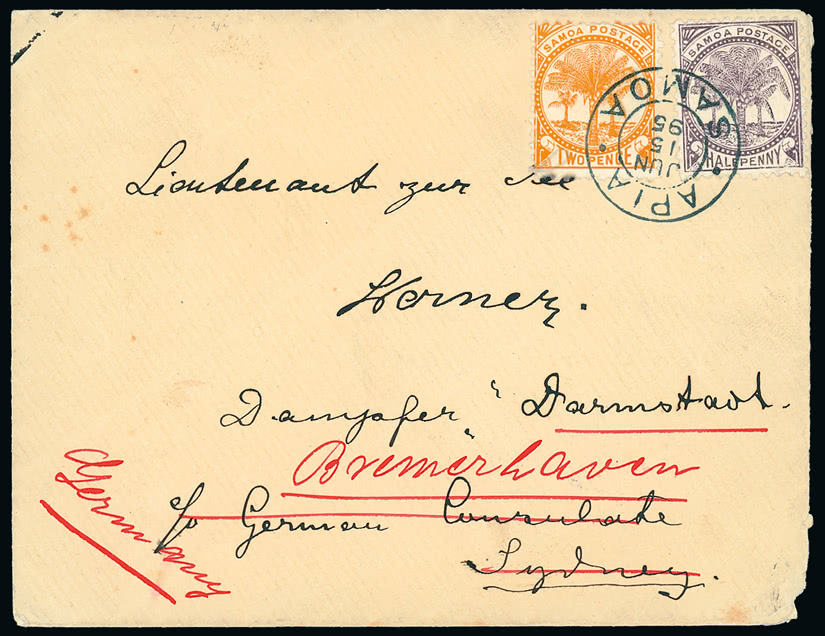 SAMOA POSTAGE
TWO PENCE
SAMOA POSTAGE
HALFPENNY
APIA • SAMOA •
JUN
15
95
Lieutenant zur See
Werner.
Dampfer "Darmstadt"
Bremerhaven
c/o German Consulate
Sydney.
Germany